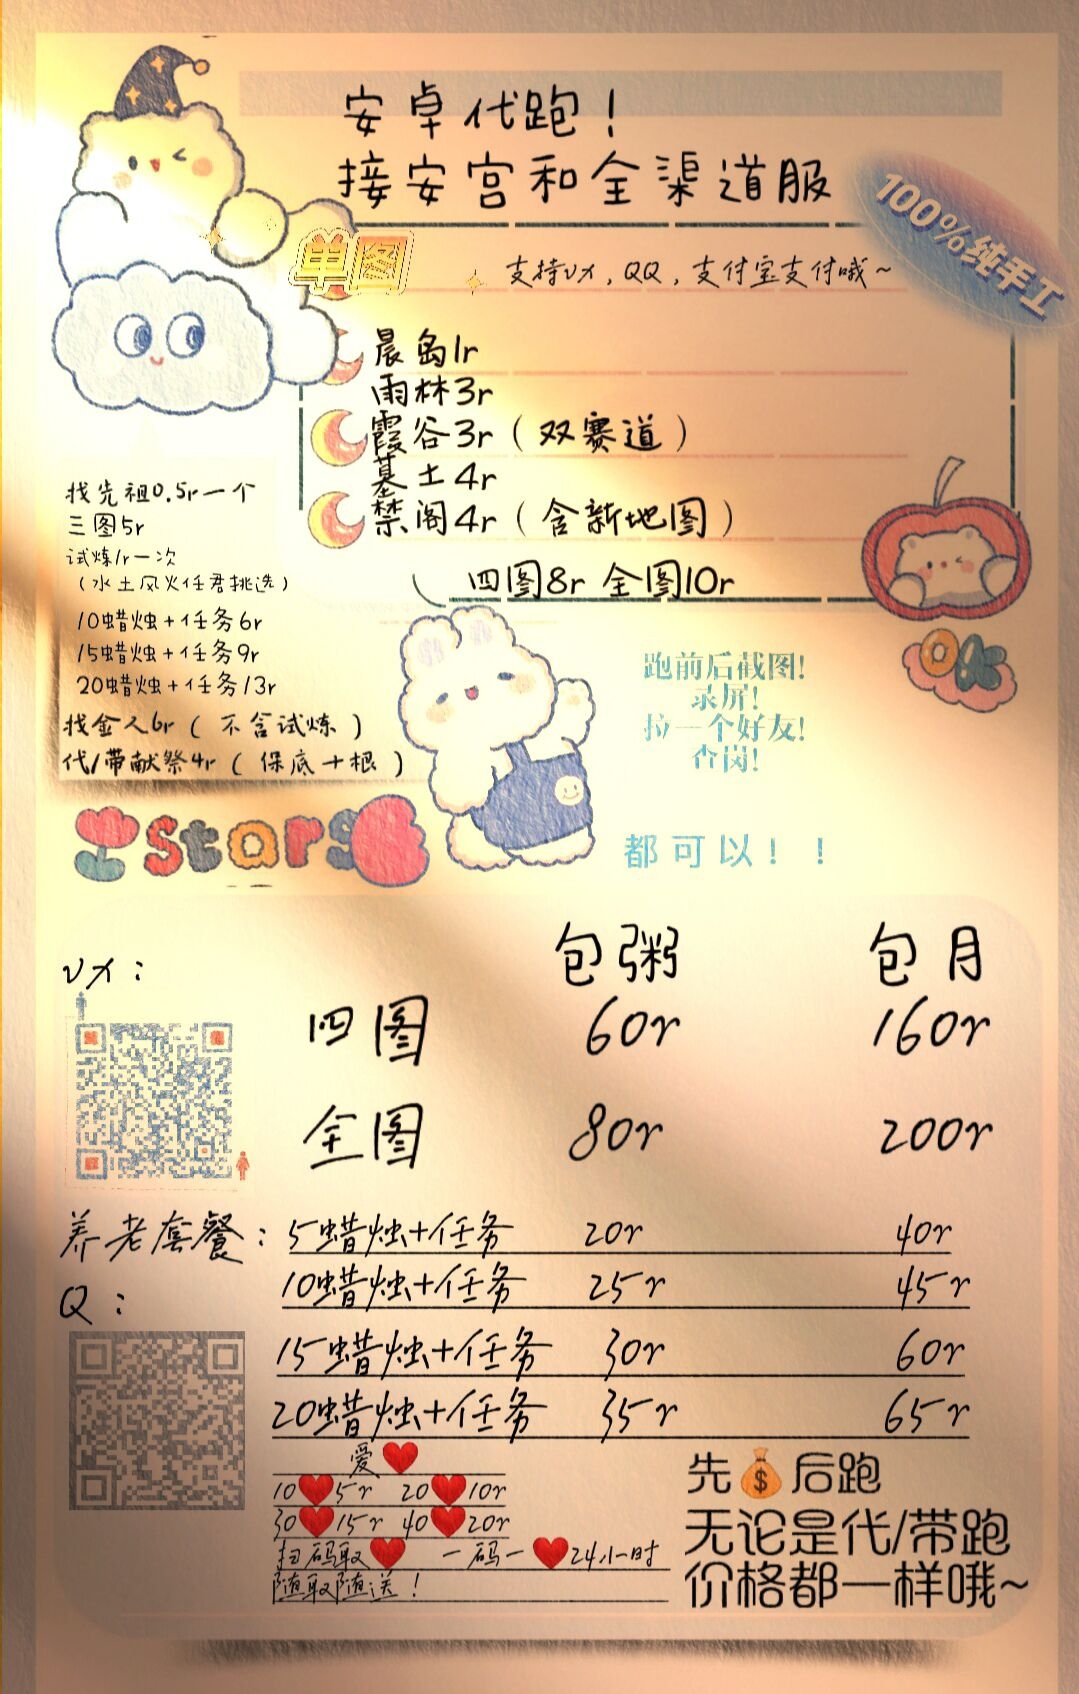 安卓代跑！
接安宫和全渠道服
100%纯手工
单图
支持vx，QQ，支付宝支付哦~
晨岛1r
雨林3r
霞谷3r（双赛道）
墓土4r
禁阁4r（含新地图）
四图8r 全图10r
找先祖0.5r一个
三图5r
试炼1r一次
（水土风火任君挑选）
10蜡烛+任务6r
15蜡烛+任务9r
20蜡烛+任务13r
找金人6r（不含试炼）
代/带献祭4r（保底十根）
OK
跑前后截图！
录屏！
拉一个好友！
查岗！
都可以！！
stars
包粥 包月
vx：
四图 60r 160r
全图 80r 200r
养老套餐：5蜡烛+任务 20r 40r
Q：
10蜡烛+任务 25r 45r
15蜡烛+任务 30r 60r
20蜡烛+任务 35r 65r
爱❤️
10❤️5r 20❤️10r
30❤️15r 40❤️20r
扫码取❤️ 一码一❤️24小时
随取随送！
先💰后跑
无论是代/带跑
价格都一样哦~